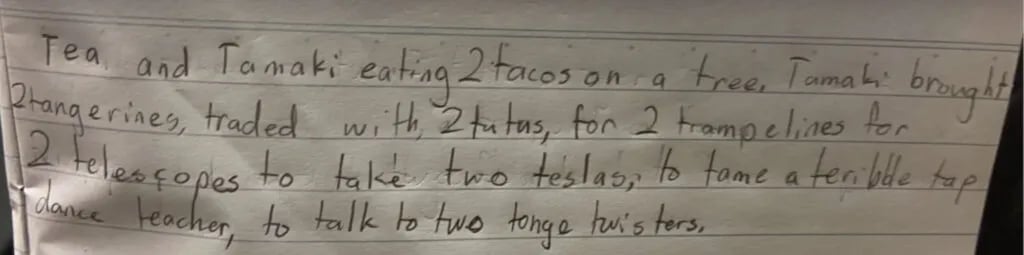 Tea and Tamaki eating 2 tacos on a tree, Tamaki brought
2 tangerines, traded with, 2 tutus, for 2 trampelines for
2 telescopes to take two teslas, to tame a teribble tap
dance teacher, to talk to two tonge twisters.